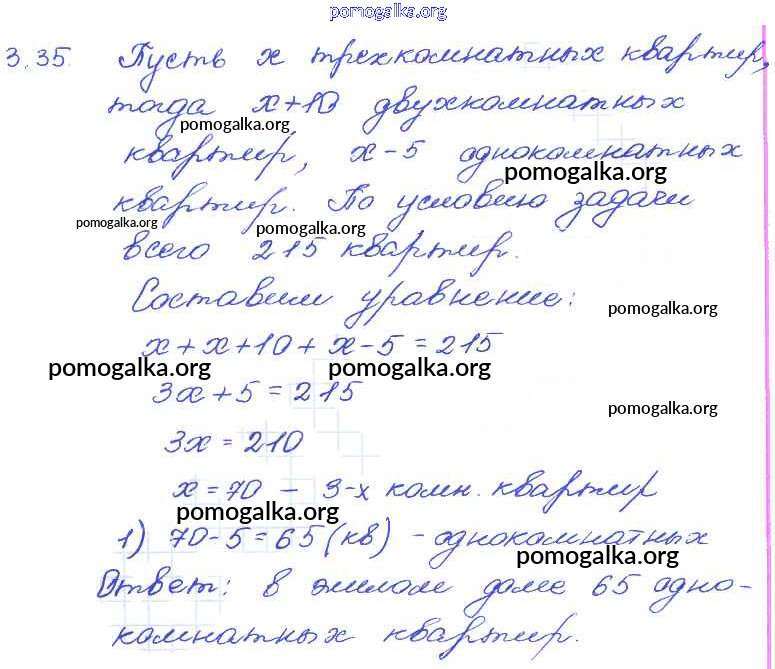 pomogalka.org
3.35. Пусть x трехкомнатных квартир,
тогда x+10 двухкомнатных
pomogalka.org
квартир, x-5 однокомнатных
pomogalka.org
квартир. По условию задачи
pomogalka.org pomogalka.org
всего 215 квартир.
Составим уравнение:
pomogalka.org
x+x+10+x-5=215
pomogalka.org pomogalka.org
3x+5=215
pomogalka.org
3x=210
x=70 - 3-х комн. квартир
pomogalka.org
1) 70-5=65 (кв) - однокомнатных
pomogalka.org
Ответ: в жилом доме 65 одно-
комнатных квартир.